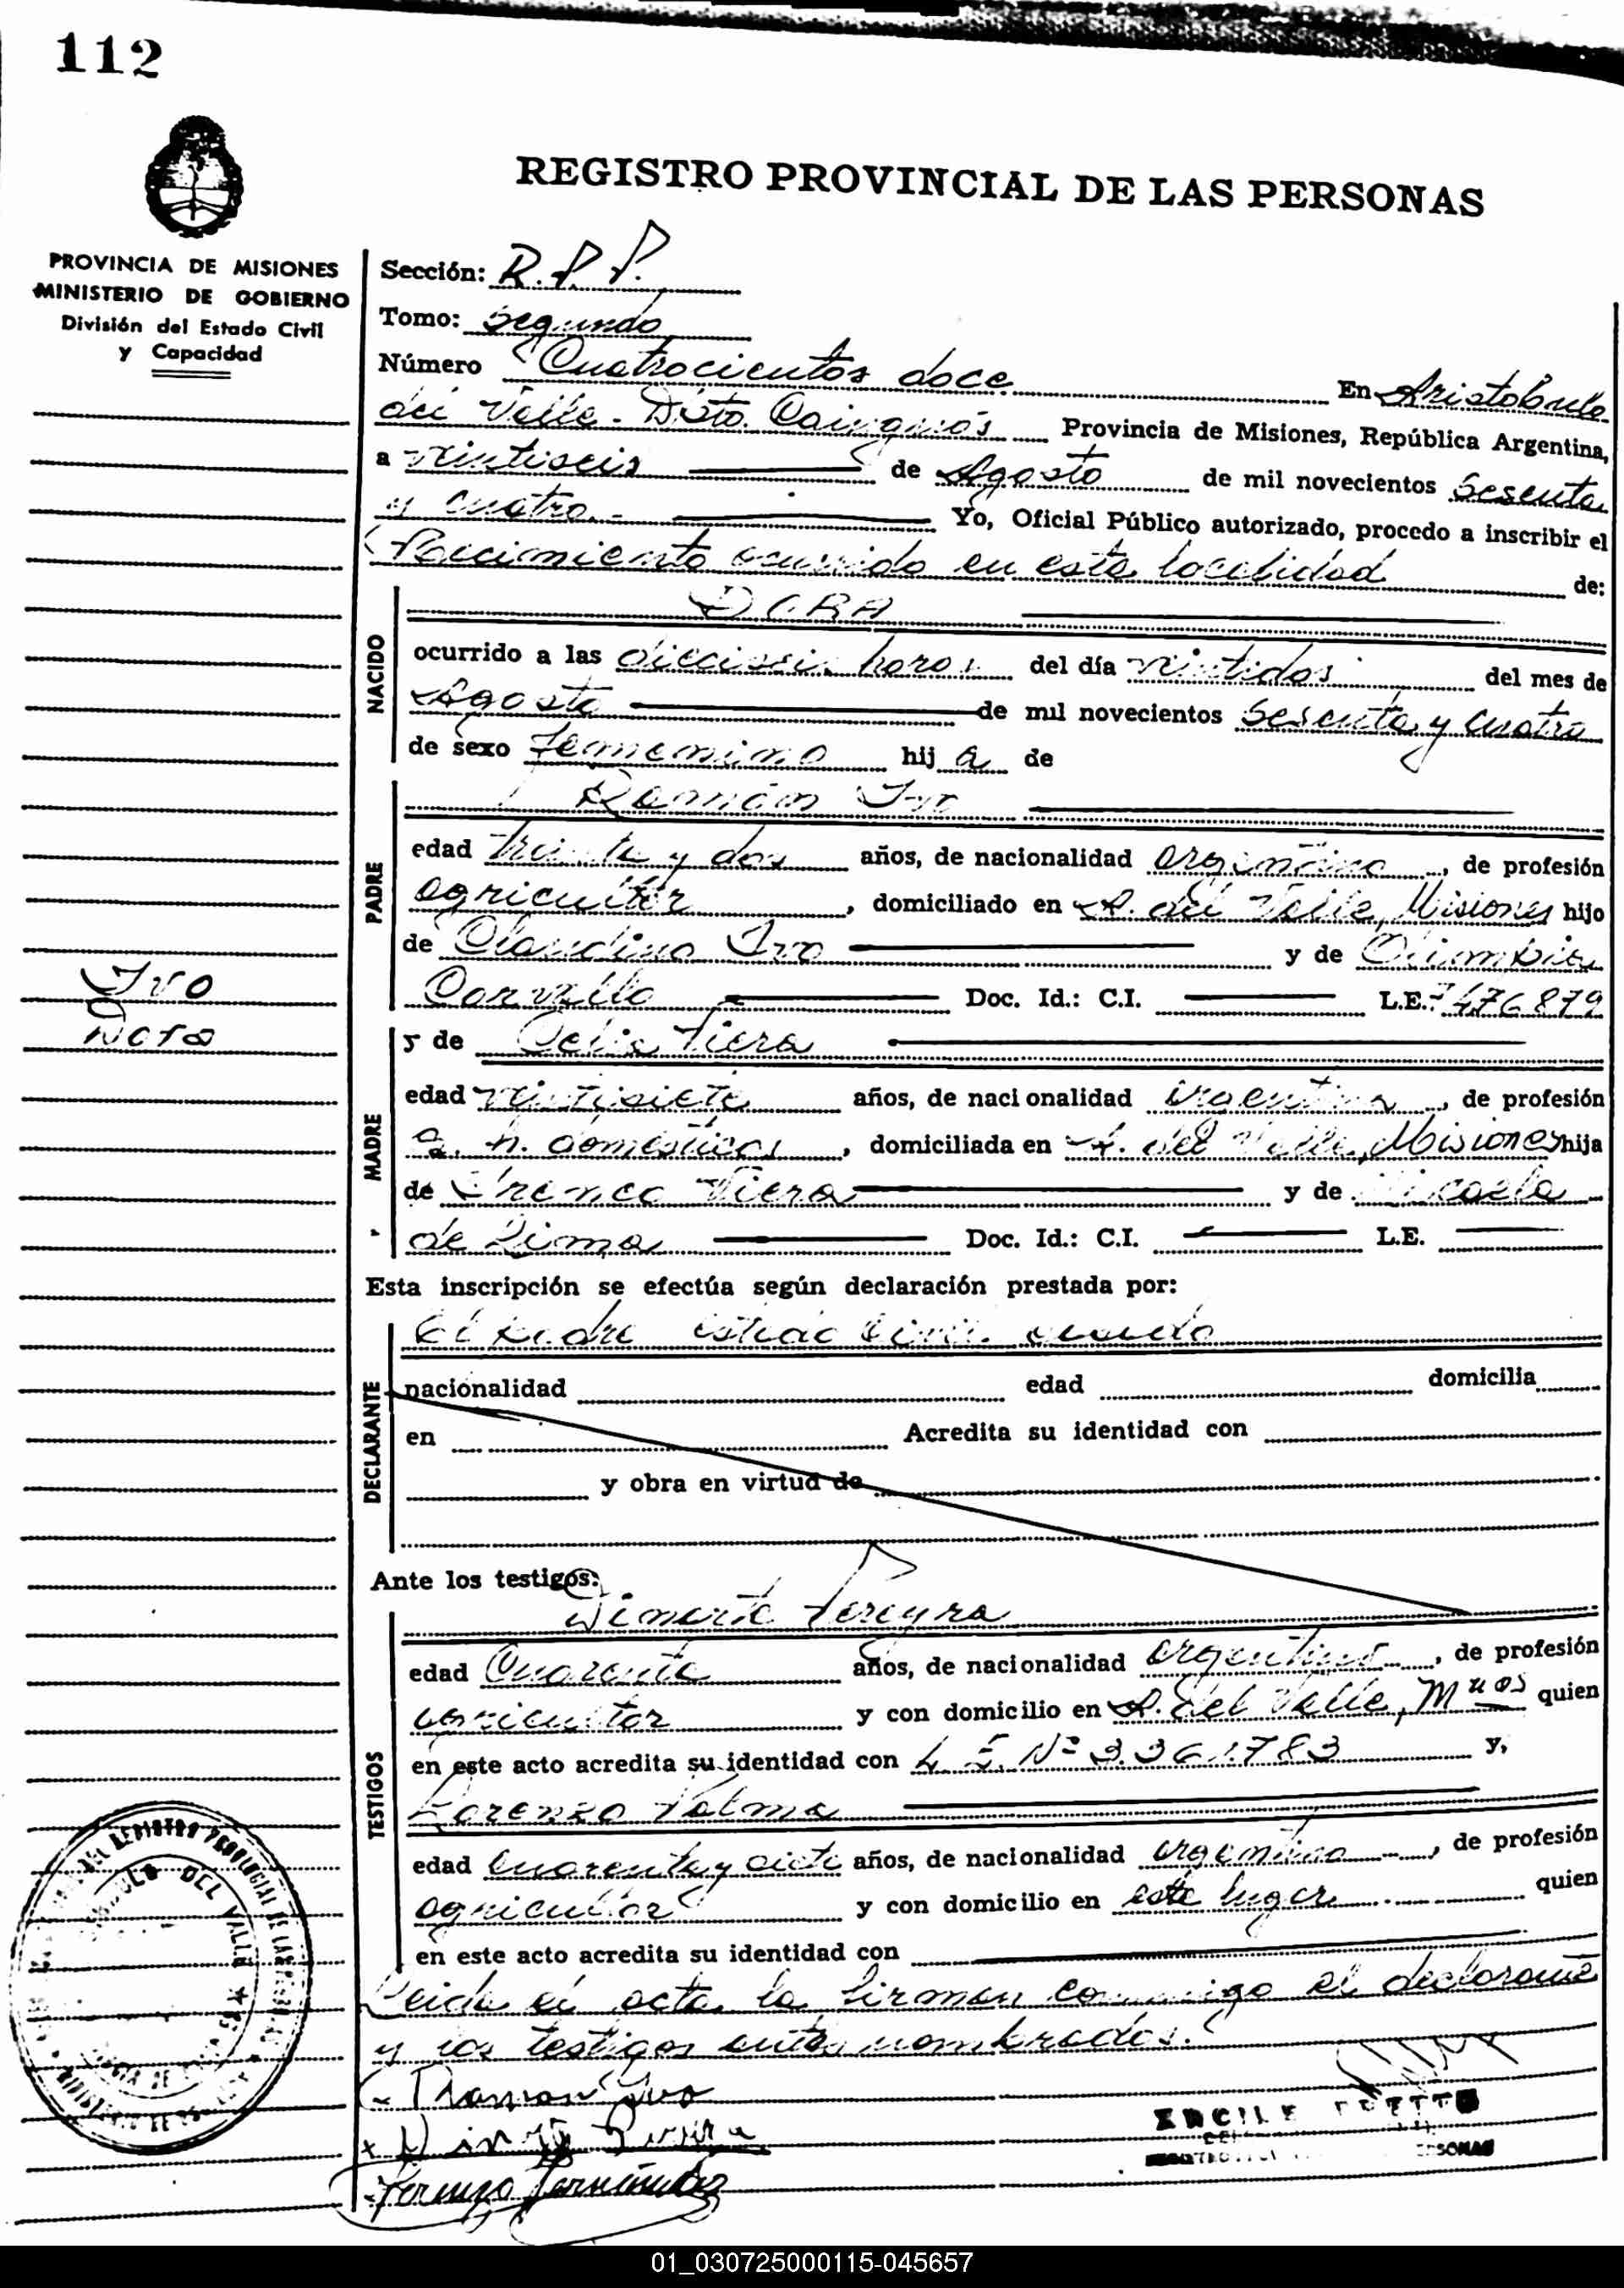 112
REGISTRO PROVINCIAL DE LAS PERSONAS
PROVINCIA DE MISIONES
MINISTERIO DE GOBIERNO
División del Estado Civil
y Capacidad
Sección: R.P.P.
Tomo: Segundo
Número Cuatrocientos doce En Aristobulo
del Valle - Dsto. Cainguás Provincia de Misiones, República Argentina,
a veintiseis de Agosto de mil novecientos sesenta
y cuatro.- Yo, Oficial Público autorizado, procedo a inscribir el
Nacimiento ocurrido en esta localidad de:
NACIDO
DORA
ocurrido a las dieciseis horas del día veintidos del mes de
Agosto de mil novecientos sesenta y cuatro
de sexo femenino hij a de
PADRE
Ramón Ivo
edad treinta y dos años, de nacionalidad argentina, de profesión
agricultor, domiciliado en A. del Valle, Misiones hijo
de Claudino Ivo y de
Carvallo Doc. Id.: C.I. L.E. 7476879
Ivo
Dora
MADRE
y de Celia Viera
edad veintisiete años, de nacionalidad argentina, de profesión
q. h. domésticos, domiciliada en A. del Valle, Misiones hija
de Viera y de Micaela
de Lima Doc. Id.: C.I. L.E.
Esta inscripción se efectúa según declaración prestada por:
DECLARANTE
El padre estado civil
nacionalidad edad domicilia
en Acredita su identidad con
y obra en virtud de
Ante los testigos:
TESTIGOS
Pereyra
edad Cuarenta años, de nacionalidad argentino, de profesión
agricultor y con domicilio en A. del Valle, Mnes quien
en este acto acredita su identidad con L.E. Nº 3.361.783 y,
Lorenzo Palma
edad cuarenta y siete años, de nacionalidad argentina, de profesión
agricultor y con domicilio en este lugar quien
en este acto acredita su identidad con
Leida el acta la firman conmigo el declarante
y los testigos antes nombrados.
Ramon Ivo
DEL VALLE
01_030725000115-045657